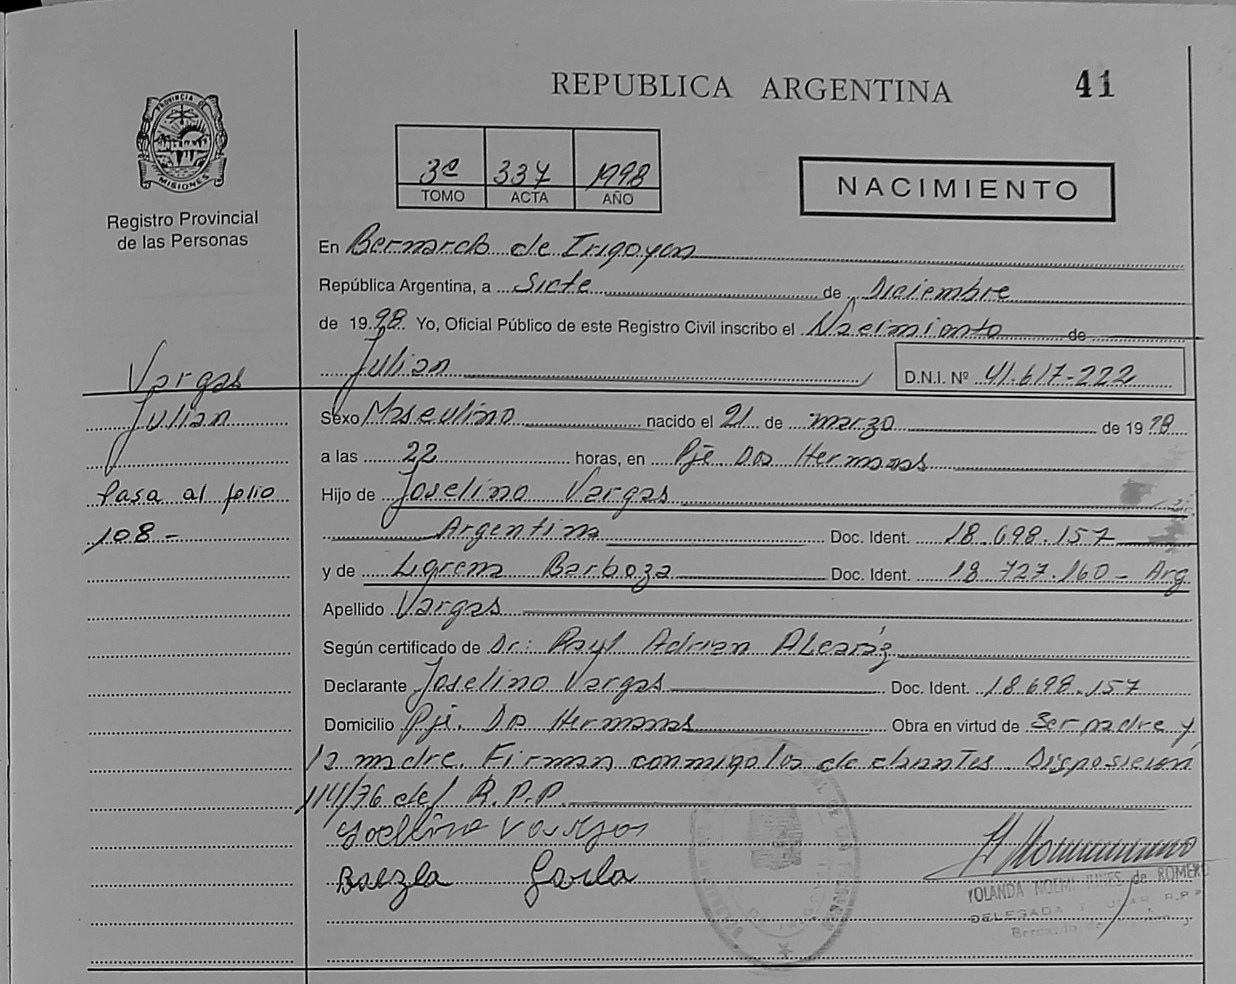 REPUBLICA ARGENTINA
41
PROVINCIA DE
MISIONES
Registro Provincial
de las Personas
3ª 337 1998
TOMO ACTA AÑO
NACIMIENTO
En Bernardo de Irigoyen
República Argentina, a Siete de Diciembre
de 1998. Yo, Oficial Público de este Registro Civil inscribo el Nacimiento de
Julian D.N.I. Nº 41.617-222
Vargas
Julian
Pasa al folio
108-
Sexo Masculino nacido el 21 de marzo de 1998
a las 22 horas, en Pje. Dos Hermanas
Hijo de Joselino Vargas
Argentina Doc. Ident. 18.698.157
y de Barboza Doc. Ident. 18.727.160 - Arg
Apellido Vargas
Según certificado de Dr: Raul Adrian Alcaráz
Declarante Joselino Vargas Doc. Ident. 18.698.157
Domicilio Pje. Dos Hermanas Obra en virtud de Ser padre y
la madre. Firman conmigo los declarantes. Disposicion
114/76 del R.P.P.
YOLANDA NOEMI de ROMERO
DELEGADA R.P.P